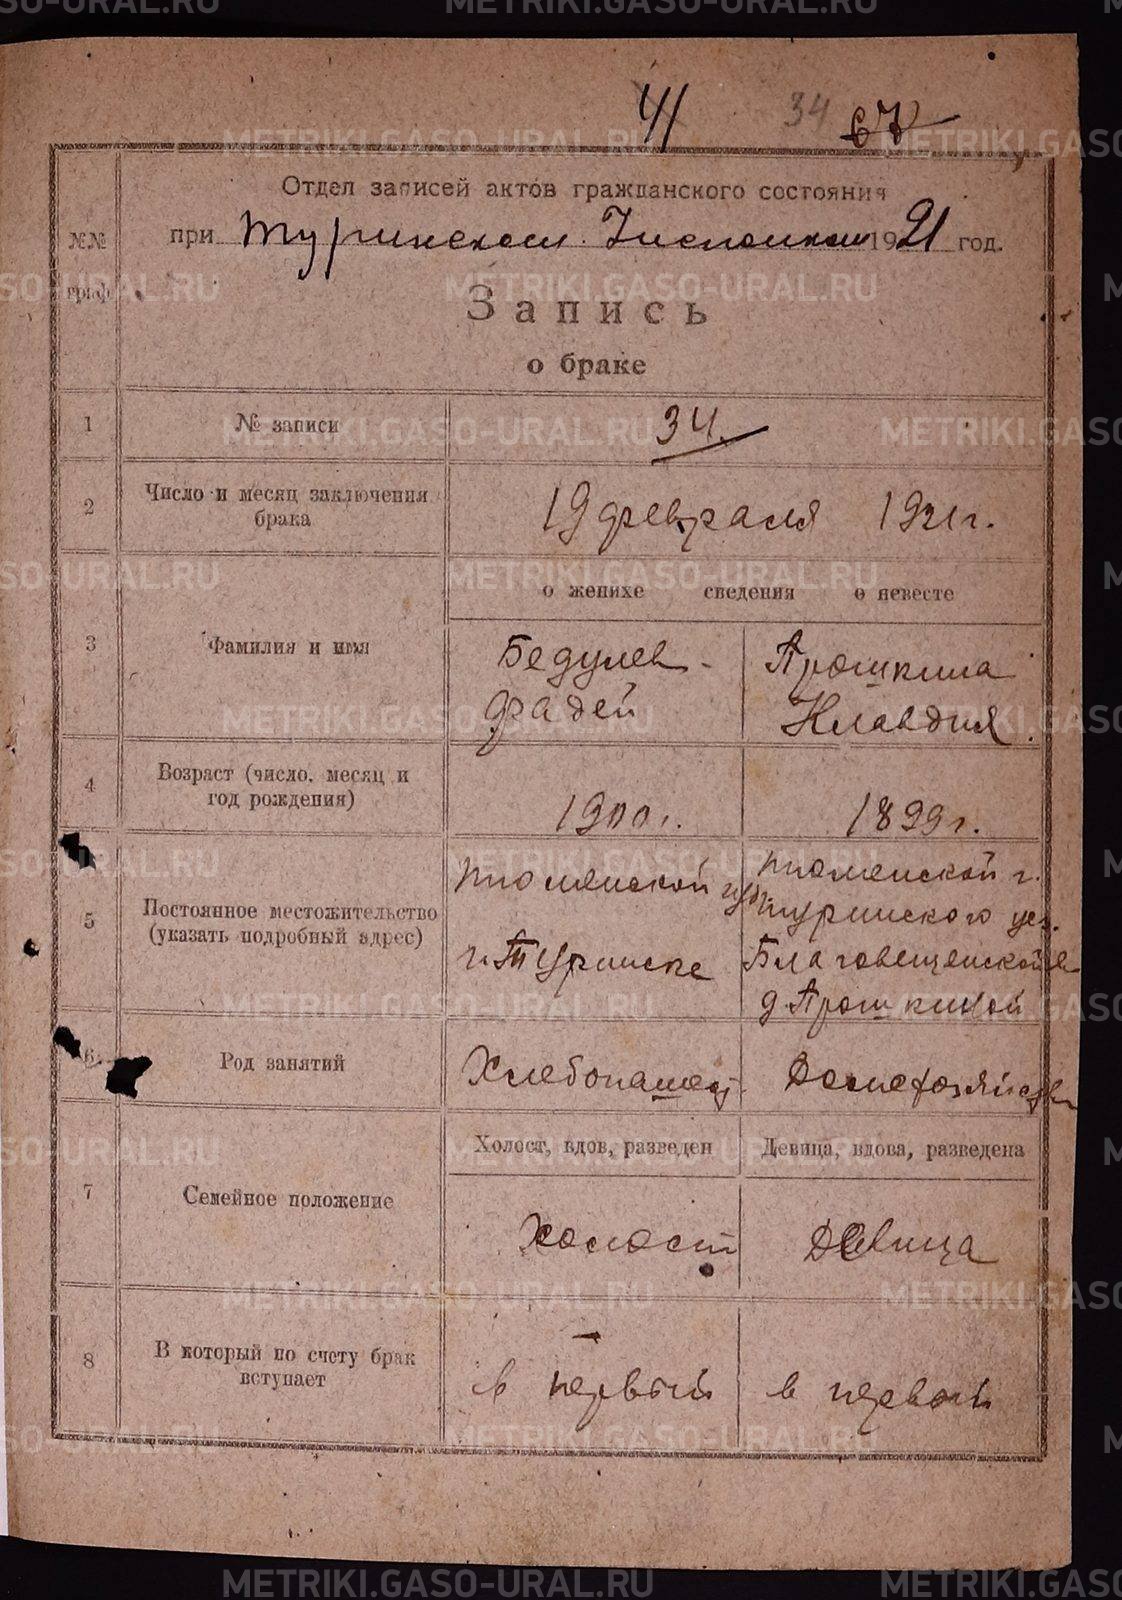 41 34 67
Отдел записей актов гражданского состояния
при Туринском Исполкоме 1921 год.
№№ граф
Запись
о браке
1 № записи 34.
2 Число и месяц заключения брака 19 февраля 1921 г.
о женихе сведения о невесте
3 Фамилия и имя
Бедулев Фадей
Прошкина Клавдия.
4 Возраст (число, месяц и год рождения) 1900 г. 1899 г.
5 Постоянное местожительство (указать подробный адрес)
Тюменской губ.
г. Туринске
Тюменской г.
Туринского уез.
Благовещенской в
д. Прошкиной
6 Род занятий Хлебопашец Домохозяйств
Холост, вдов, разведен Девица, вдова, разведена
7 Семейное положение Холост Девица
8 В который по счету брак вступает в первый в первый
METRIKI.GASO-URAL.RU